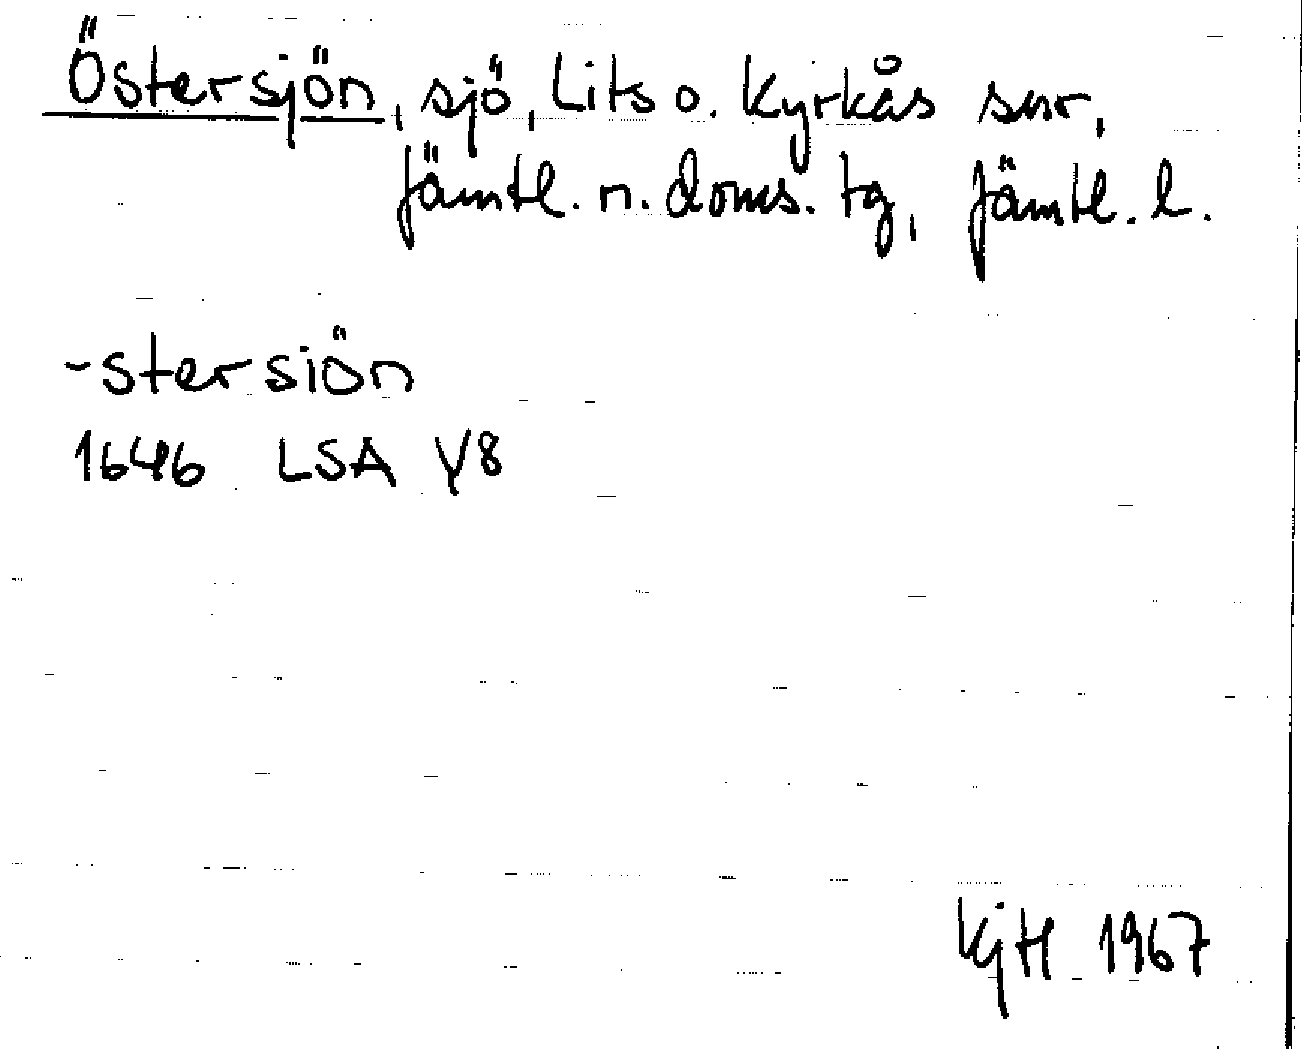 Östersjön, sjö, Lits o. Kyrkås snr,
Jämtl. n. doms. tg, Jämtl. l.
-stersiön
1646 LSA Y8
KjH 1967